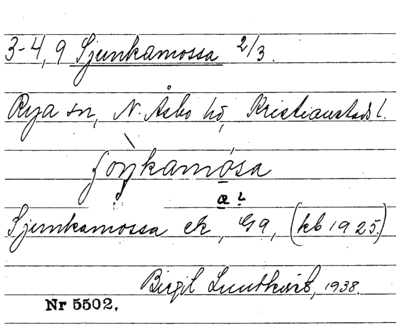 3-4, 9 Sjunkamossa 2/3.
Rya sn, N. Åsbo hd, Kristianstads l.
ʃoŋkamósa
œ ?
Sjunkamossa ek, G9, (kb 1925.)
Birgit Lundkvist, 1938.
Nr 5502.